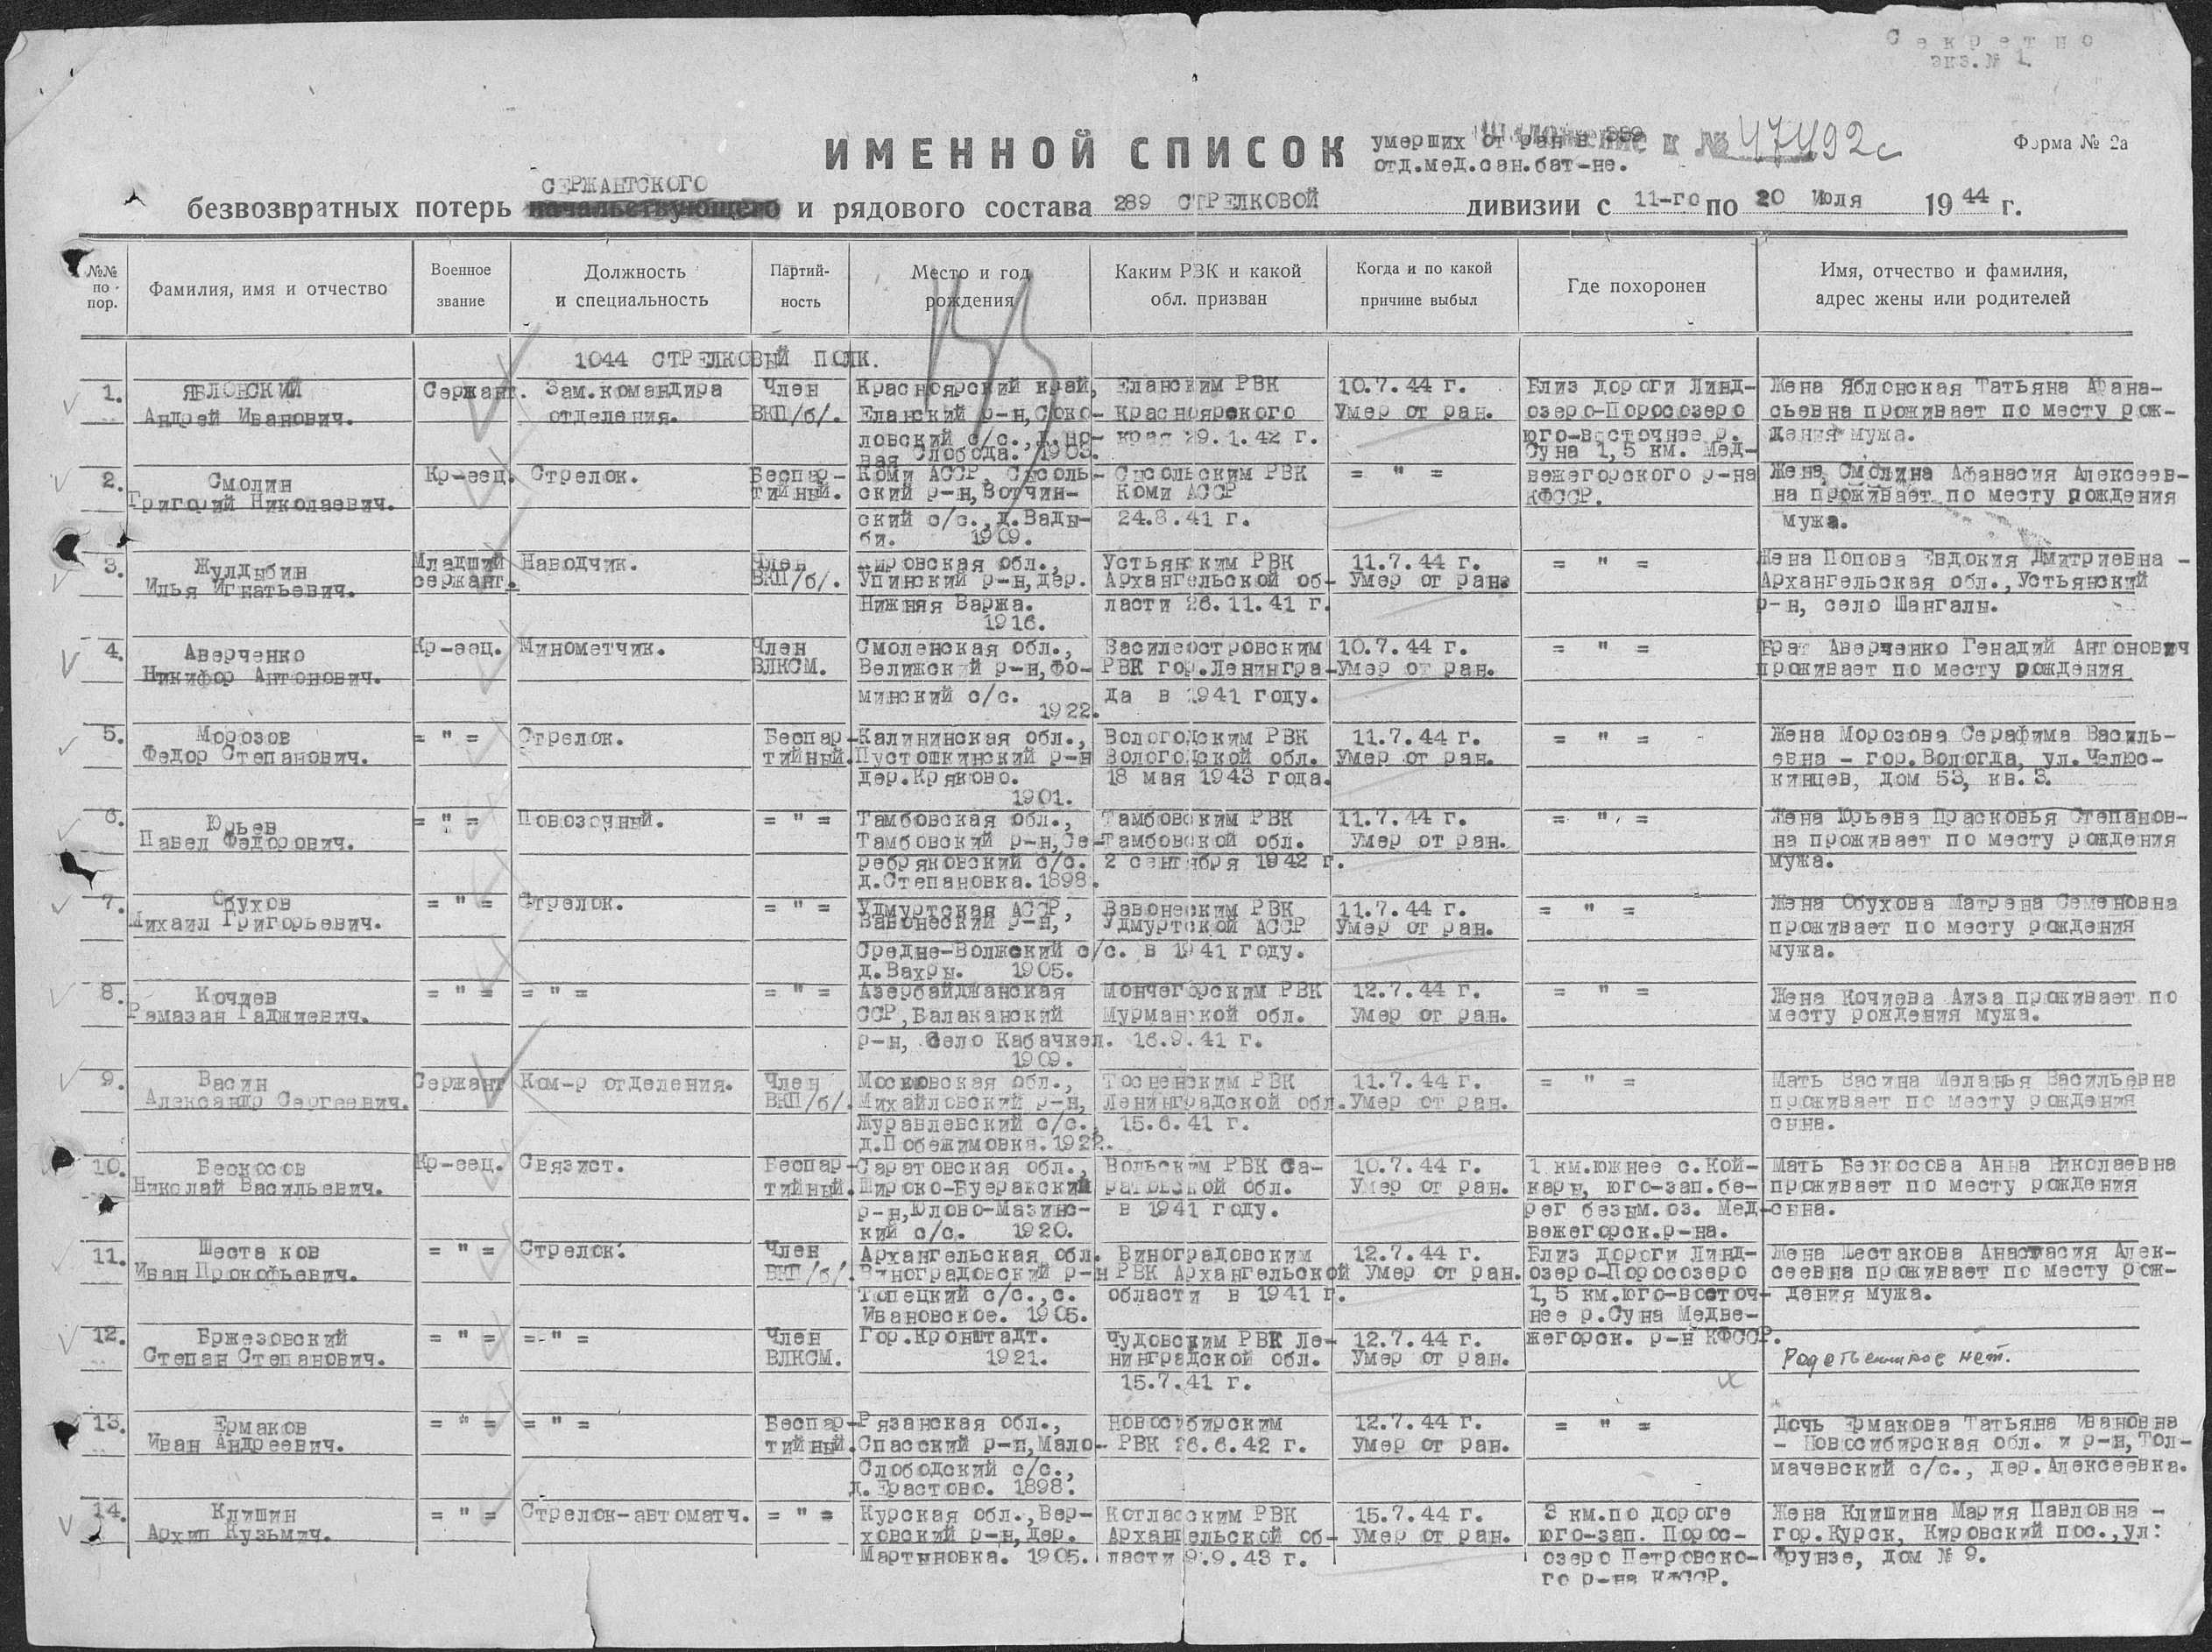 Секретно
экз.№ 1.
ИМЕННОЙ СПИСОК
умерших от ран в
отд.мед.сан.бат-не.
№ 47492с
Форма № 2а
СЕРЖАНТСКОГО
безвозвратных потерь начальствующего и рядового состава 289 СТРЕЛКОВОЙ дивизии с 11-го по 20 Июля 1944 г.
№№ по пор.
Фамилия, имя и отчество
Военное звание
Должность и специальность
Партийность
Место и год рождения
Каким РВК и какой обл. призван
Когда и по какой причине выбыл
Где похоронен
Имя, отчество и фамилия, адрес жены или родителей
1044 СТРЕЛКОВЫЙ ПОЛК.
1. ЯБЛОНСКИЙ Сержант. Зам.командира Член Красноярский край, Еланским РВК 10.7.44 г. Близ дороги Линд- Жена Яблонская Татьяна Афана-
Андрей Иванович. отделения. ВКП/б/. Еланский р-н, Соко- Красноярского Умер от ран. озеро-Поросозеро сьевна проживает по месту рож-
ловский с/с., д. но- края 29.1.42 г. юго-восточнее р. дения мужа.
вая Слобода. 1903. Суна 1,5 км. Мед-
2. Смолин Кр-еец. Стрелок. Беспар- Коми АССР, Сысоль- Сысольским РВК = " = вежегорского р-на Жена Смолина Афанасия Алексеев-
Григорий Николаевич. тийный. ский р-н, Вотчин- Коми АССР КФССР. на проживает по месту рождения
ский с/с., д.Вады- 24.8.41 г. мужа.
би. 1909.
3. Жулдыбин Младший Наводчик. Член Кировская обл., Устьянским РВК 11.7.44 г. = " = Жена Попова Евдокия Дмитриевна -
Илья Игнатьевич. сержант. ВКП/б/. Упинский р-н, дер. Архангельской об- Умер от ран. Архангельская обл., Устьянский
Нижняя Варжа. ласти 26.11.41 г. р-н, село Шангалы.
1916.
4. Аверченко Кр-еец. Минометчик. Член Смоленская обл., Василеостровским 10.7.44 г. = " = Брат Аверченко Генадий Антонович
Никифор Антонович. ВЛКСМ. Велижский р-н, Фо- РВК гор.Ленингра- Умер от ран. проживает по месту рождения
минский с/с. да в 1941 году.
1922.
5. Морозов = " = Стрелок. Беспар- Калининская обл., Вологодским РВК 11.7.44 г. = " = Жена Морозова Серафима Василь-
Федор Степанович. тийный. Пустошкинский р-н Вологодской обл. Умер от ран. евна - гор.Вологда, ул.Челюс-
дер.Кряково. 18 мая 1943 года. кинцев, дом 53, кв. 3.
1901.
6. Юрьев = " = Повозочный. = " = Тамбовская обл., Тамбовским РВК 11.7.44 г. = " = Жена Юрьева Прасковья Степанов-
Павел Федорович. Тамбовский р-н, Се- Тамбовской обл. Умер от ран. на проживает по месту рождения
ребряковский с/с. 2 сентября 1942 г. мужа.
д.Степановка. 1898.
7. Обухов = " = Стрелок. = " = Удмуртская АССР, Вавонеским РВК 11.7.44 г. = " = Жена Обухова Матрена Семеновна
Михаил Григорьевич. Вавонеский р-н, Удмуртской АССР Умер от ран. проживает по месту рождения
Средне-Волжский с/с. в 1941 году. мужа.
д.Вахры. 1905.
8. Кочиев = " = = " = = " = Азербайджанская Мончегорским РВК 12.7.44 г. = " = Жена Кочиева Аиза проживает по
Рамазан Гаджиевич. ССР, Балаканский Мурманской обл. Умер от ран. месту рождения мужа.
р-н, село Кабачкел. 16.9.41 г.
1909.
9. Васин Сержант Ком-р отделения. Член Московская обл., Тосненским РВК 11.7.44 г. = " = Мать Васина Меланья Васильевна
Александр Сергеевич. ВКП/б/. Михайловский р-н, Ленинградской обл. Умер от ран. проживает по месту рождения
Журавлевский с/с., 15.6.41 г. сына.
д.Побежимовка. 1922.
10. Бескосов Кр-еец. Связист. Беспар- Саратовская обл., Вольским РВК Са- 10.7.44 г. 1 км.южнее с.Кой- Мать Бескосова Анна Николаевна
Николай Васильевич. тийный. Широко-Буеракский ратовской обл. Умер от ран. кары, юго-зап.бе- проживает по месту рождения
р-н, Юлово-Мазинс- в 1941 году. рег безым.оз. Мед- сына.
кий с/с. 1920. вежегорск.р-на.
11. Шестаков = " = Стрелок. Член Архангельская обл. Виноградовским 12.7.44 г. Близ дороги Линд- Жена Шестакова Анастасия Алек-
Иван Прокофьевич. ВКП/б/. Виноградовский р-н РВК Архангельской Умер от ран. озеро-Поросозеро сеевна проживает по месту рож-
Топецкий с/с., с. области в 1941 г. 1,5 км.юго-восточ- дения мужа.
Ивановское. 1905. нее р.Суна Медве-
12. Бржезовский = " = =-"= Член Гор.Кронштадт. Чудовским РВК Ле- 12.7.44 г. жегорск. р-н КФССР.
Степан Степанович. ВЛКСМ. 1921. нинградской обл. Умер от ран. Родственников нет.
15.7.41 г.
13. Ермаков = " = = " = Беспар- Рязанская обл., Новосибирским 12.7.44 г. = " = Дочь Ермакова Татьяна Ивановна
Иван Андреевич. тийный. Спасский р-н, Мало- РВК 26.6.42 г. Умер от ран. - Новосибирская обл. и р-н, Тол-
Слободский с/с., мачевский с/с., дер.Алексеевка.
д.Ерастово. 1898.
14. Клишин = " = Стрелок-автоматч. = " = Курская обл., Вер- Котласским РВК 15.7.44 г. 3 км.по дороге Жена Клишина Мария Павловна -
Архип Кузьмич. ховский р-н, дер. Архангельской об- Умер от ран. юго-зап. Порос- гор.Курск, Кировский пос., ул:
Мартыновка. 1905. ласти 9.9.43 г. озеро Петровско- Фрунзе, дом № 9.
го р-на КФССР.